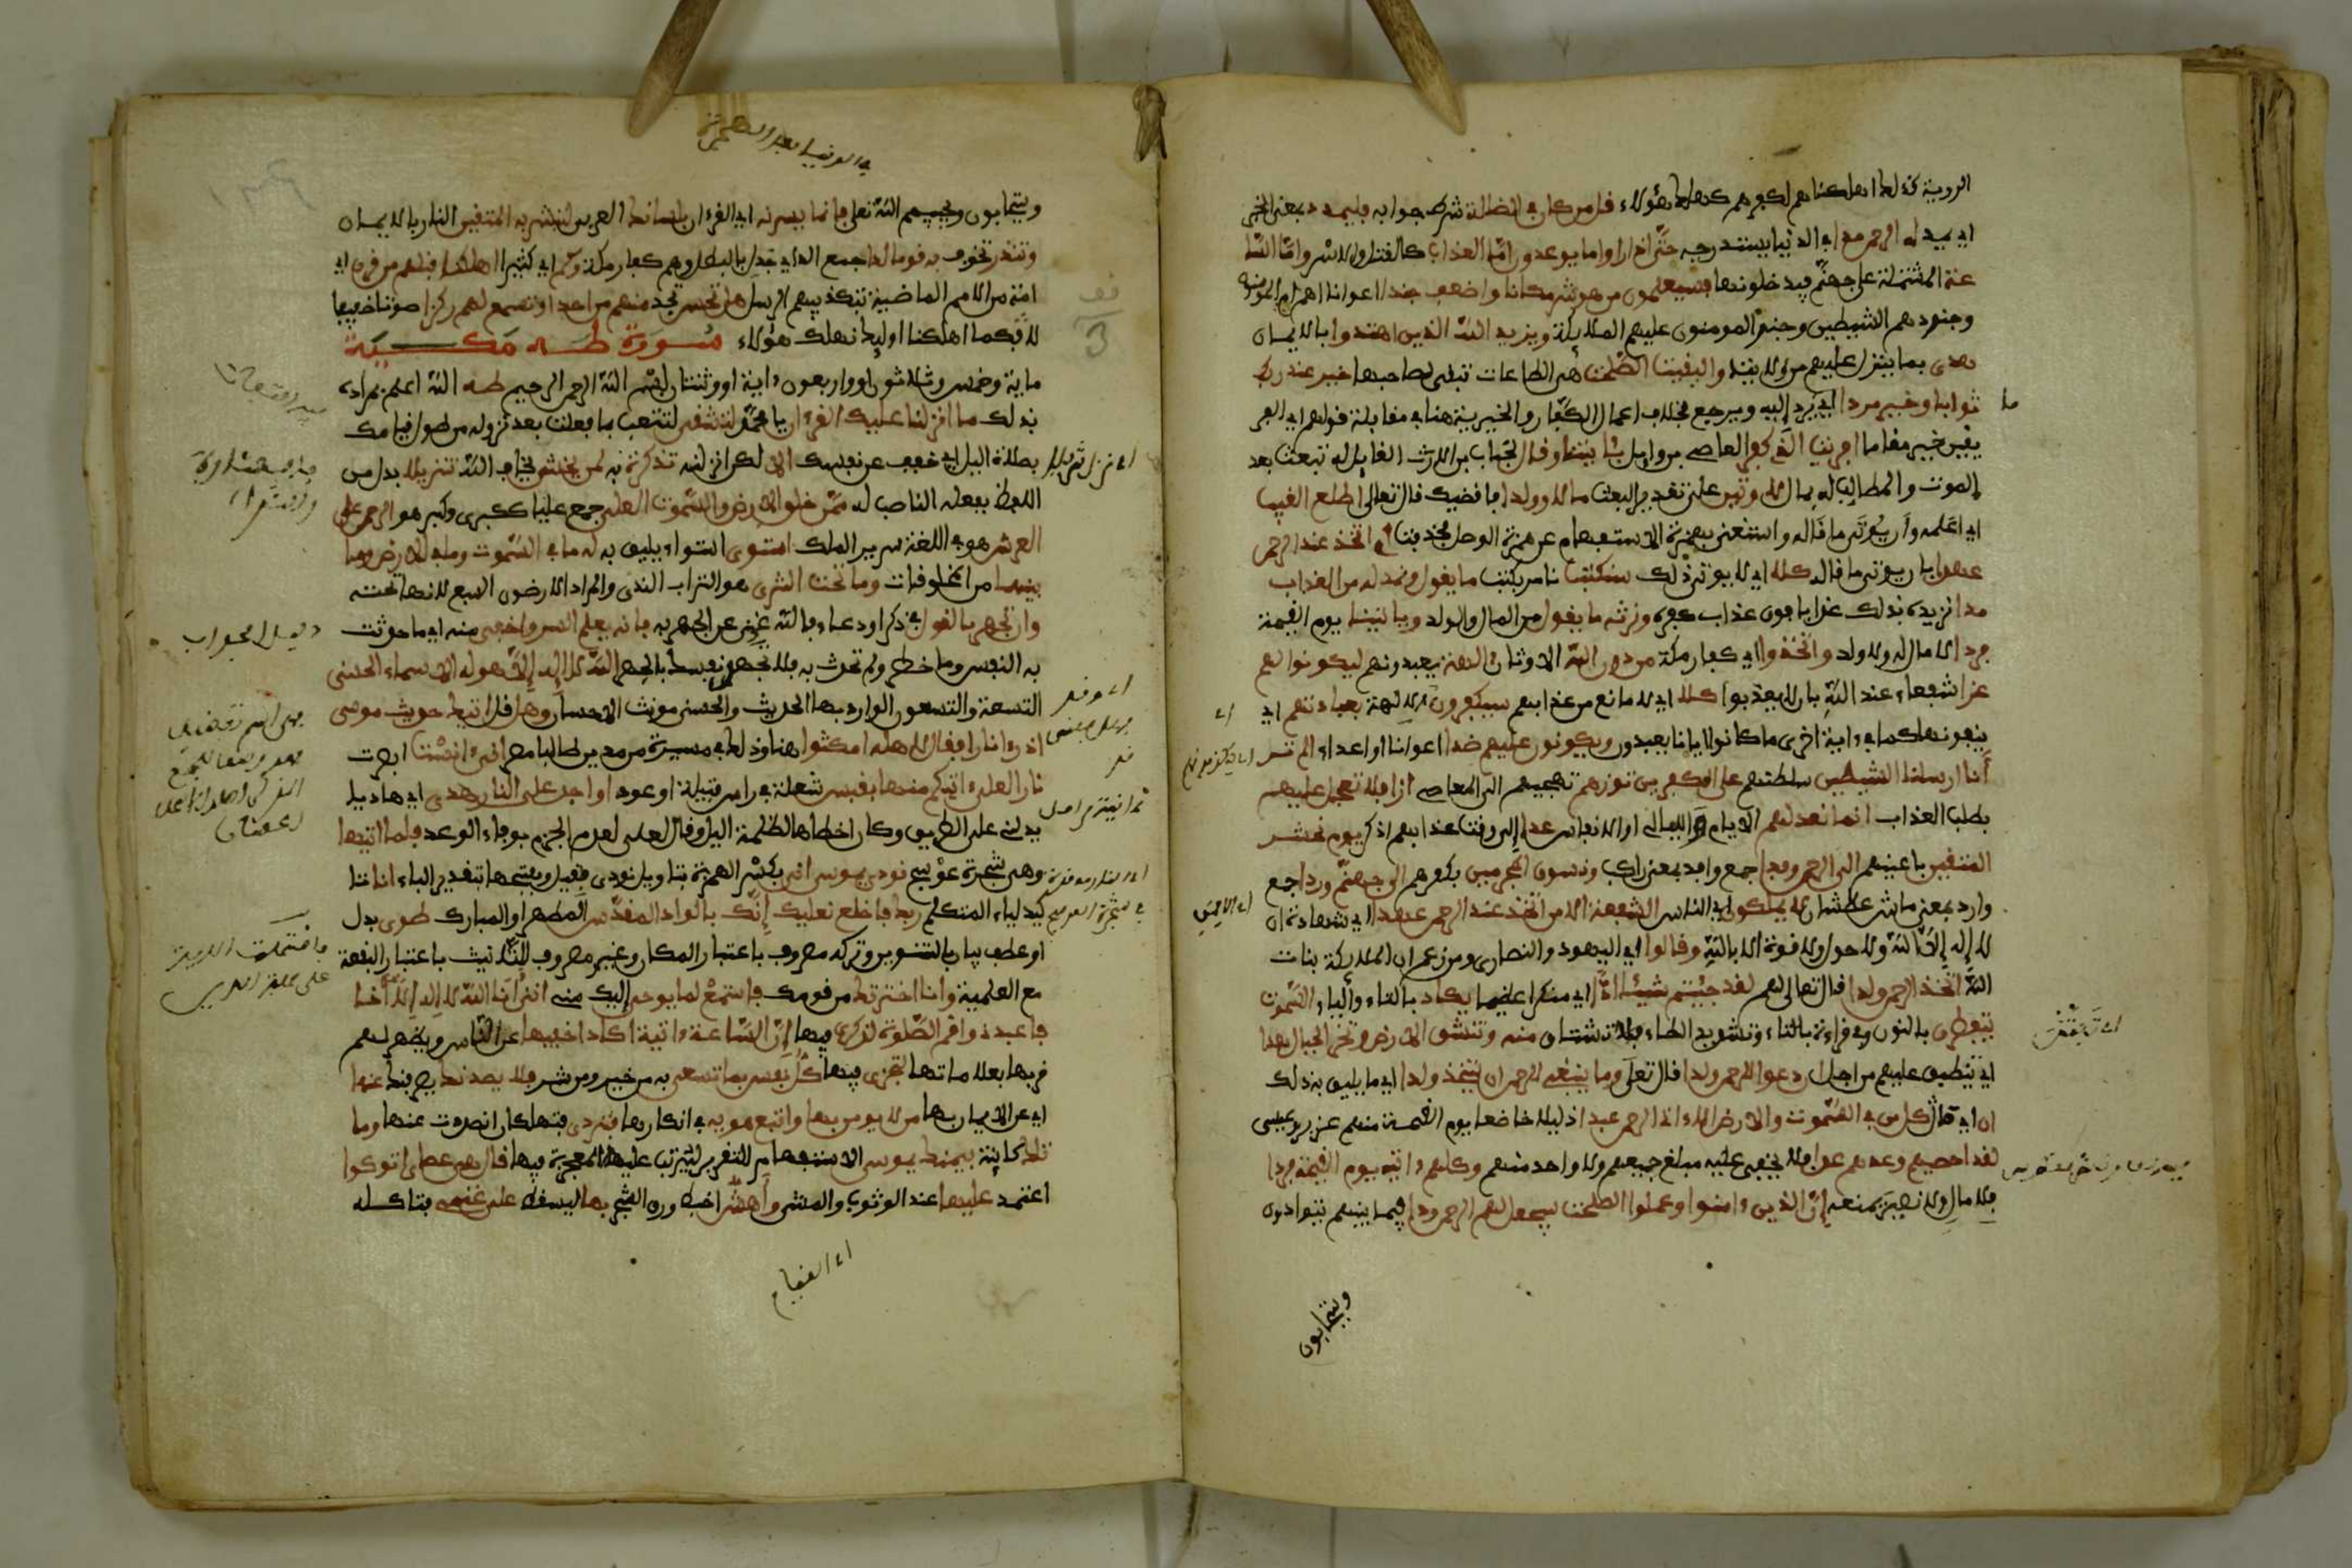 الروية فكما اهلكناهم لكفرهم كذلك هؤلاء قل من كان في الضلالة شرط جوابه فليمدد بمعنى الخبر
اي يمد له الرحمن مدا في الدنيا يستدرجه حتى اذا راوا ما يوعدون اما العذاب كالقتل والاسر واما السا
عة المشتملة على جهنم فيدخلونها فسيعلمون من هو شر مكانا واضعف جندا اعوانا اهم ام المومنون
وجندهم الشيطين وجند المومنين عليهم الملائكة ويزيد الله الذين اهتدوا بالايمان
هدى بما ينزل عليهم من الايت والبقيت الصلحت هي الطاعات تبقى لصاحبها خير عند ربك
ثوابا وخير مردا اي يرد اليه ويرجع بخلاف اعمال الكفار والخيرية هنا في مقابلة قولهم اي الفر
يقين خير مقاما افريت الذي كفر العاصي بن وايل بئايتنا وقال لخباب بن الارت القايل له تبعث بعد
الموت والمطالب له بمال لاوتين على تقدير البعث مالا وولدا فاقضيك قال تعالى اطلع الغيب
اي اعلمه وان يوتى ما قاله واستغنى بهمزة الاستفهام عن همزة الوصل فحذفت ام اتخذ عند الرحمن
عهدا بان يوتى ما قاله كلا اي لا يوتى ذلك سنكتب نامر بكتب ما يقول ونمد له من العذاب
مدا نزيده بذلك عذابا فوق عذاب كفره ونرثه ما يقول من المال والولد وياتينا يوم القيمة
فردا لا مال له ولا ولد واتخذوا اي كفار مكة من دون الله الاوثان الهة يعبدونهم ليكونوا لهم
عزا شفعاء عند الله بان لا يعذبوا كلا اي لا مانع من عذابهم سيكفرون اي الالهة بعبادتهم اي
ينفونها كما في ءاية اخرى ما كانوا ايانا يعبدون ويكونون عليهم ضدا اعوانا او اعداء الم تر
انا ارسلنا الشيطين سلطنهم على الكفرين تؤزهم تهيجهم الى المعاصي ازا فلا تعجل عليهم
بطلب العذاب انما نعد لهم الايام والليالي او الانفاس عدا الى وقت عذابهم اذكر يوم نحشر
المتقين بايمنهم الى الرحمن وفدا جمع وافد بمعنى راكب ونسوق المجرمين بكفرهم الى جهنم وردا جمع
وارد بمعنى ماش عطشان لا يملكون اي الناس الشفعة الا من اتخذ عند الرحمن عهدا اي شهادة ان
لا اله الا الله ولا حول ولا قوة الا بالله وقالوا اي اليهود والنصارى ومن زعم ان الملائكة بنات
الله اتخذ الرحمن ولدا قال تعالى لهم لقد جيتم شيئا ادا اي منكرا عظيما يكاد بالتاء والياء السموت
ينفطرن بالنون وفي قراءة بالتاء وتشديد الطاء بالانشقاق منه وتنشق الارض وتخر الجبال هدا
اي تنطبق عليهم من اجل ان دعوا للرحمن ولدا قال تعلى وما ينبغي للرحمن ان يتخذ ولدا اي ما يليق به ذلك
ان اي ما كل من في السموت والارض الا ءاتي الرحمن عبدا ذليلا خاضعا يوم القيمة منهم عزير وعيسى
لقد احصيهم وعدهم عدا فلا يخفى عليه مبلغ جميعهم ولا واحد منهم وكلهم ءاتيه يوم القيمة فردا
بلا مال ولا نصير يمنعه ان الذين ءامنوا وعملوا الصلحت سيجعل لهم الرحمن ودا فيما بينهم يتوادون
ويتحابون
ويتحابون ويحبهم الله تعلى فانما يسرنه اي القرءان بلسانك العربي لتبشر به المتقين النار بالايمان
وتنذر تخوف به قوما لدا جمع الد اي جدل بالبطل وهم كفار مكة وكم اي كثيرا اهلكنا قبلهم من قرن اي
امة من الامم الماضية بتكذيبهم الرسل هل تحس تجد منهم من احد او تسمع لهم ركزا صوتا خفيا
لا فكما اهلكنا اوليك نهلك هؤلاء سورة طه مكية
ماية وخمس وثلاثون او واربعون ءاية او وثنتان بسم الله الرحمن الرحيم طه الله اعلم بمراده
بذلك ما انزلنا عليك القرءان يا محمد لتشقى لتتعب بما فعلت بعد نزوله من طول قيامك
بصلاة اليل اي خفف عن نفسك الا لكن انزلنه تذكرة به لمن يخشى يخاف الله تنزيلا بدل من
اللفظ بفعله الناصب له ممن خلق الارض والسموت العلى جمع عليا ككبرى وكبر هو الرحمن على
العرش هو في اللغة سرير الملك استوى استواء يليق به له ما في السموت وما في الارض وما
بينهما من المخلوقات وما تحت الثرى هو التراب الندي والمراد الارضون السبع لانها تحته
وان تجهر بالقول في ذكر او دعاء فالله غني عن الجهر به فانه يعلم السر واخفى منه اي ما حدثت
به النفس وما خطر ولم تحدث به فلا تجهد نفسك بالجهر الله لا اله الا هو له الاسماء الحسنى
التسعة والتسعون الوارد بها الحديث والحسنى مونث الاحسن وهل قد اتيك حديث موسى
اذ رءا نارا فقال لاهله امكثوا هنا وذلك في مسيره من مدين طالبا مصر اني ءانست ابصرت
نارا لعلي ءاتيكم منها بقبس شعلة في راس فتيلة او عود او اجد على النار هدى اي هاديا
يدلني على الطريق وكان اخطاها لظلمة اليل وقال لعل لعدم الجزم بوفاء الوعد فلما اتيها
وهي شجرة عوسج نودي يموسى اني بكسر الهمزة بتاويل نودي بقيل وبفتحها بتقدير الباء انا تا
كيد لياء المتكلم ربك فاخلع نعليك انك بالواد المقدس المطهر او المبارك طوى بدل
او عطف بيان بالتنوين وتركه مصروف باعتبار المكان وغير مصروف للتانيث باعتبار البقعة
مع العلمية وانا اخترتك من قومك فاستمع لما يوحى اليك مني انني انا الله لا اله الا انا
فاعبدني واقم الصلوة لذكري فيها ان الساعة ءاتية اكاد اخفيها عن الناس ويظهر لهم
قربها بعلاماتها لتجزى فيها كل نفس بما تسعى به من خير ومن شر فلا يصدنك يصرفنك عنها
اي عن الايمان بها من لا يومن بها واتبع هويه في انكارها فتردى فتهلك ان انصددت عنها وما
تلك كاينة بيمينك يموسى الاستفهام للتقرير ليترتب عليه المعجزة فيها قال هي عصاي اتوكوا
اعتمد عليها عند الوثوب والمشي واهش اخبط ورق الشجر بها ليسقط على غنمي فتاكله